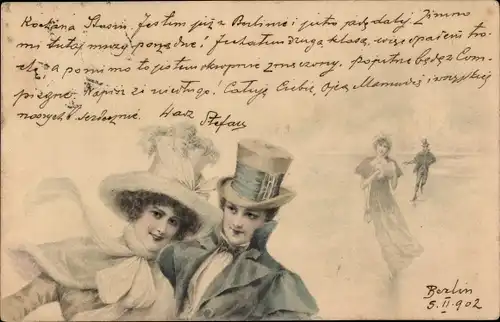 Kochana Stasiu, Jestem już w Berlinie i jutro jadę dalej. Zimno
mi tutaj muszę porządnie! Jechałem drugą klasą, więc opadłem tro-
chę, a pomimo to jestem okropnie zmęczony. Pojutrze będę z Com-
piegne. Napisz zi niedługo. Całuję Ciebie, Ojca, Mamusię i wszystkich
naszych serdecznie. Wasz Stefan
Berlin
5.II.902